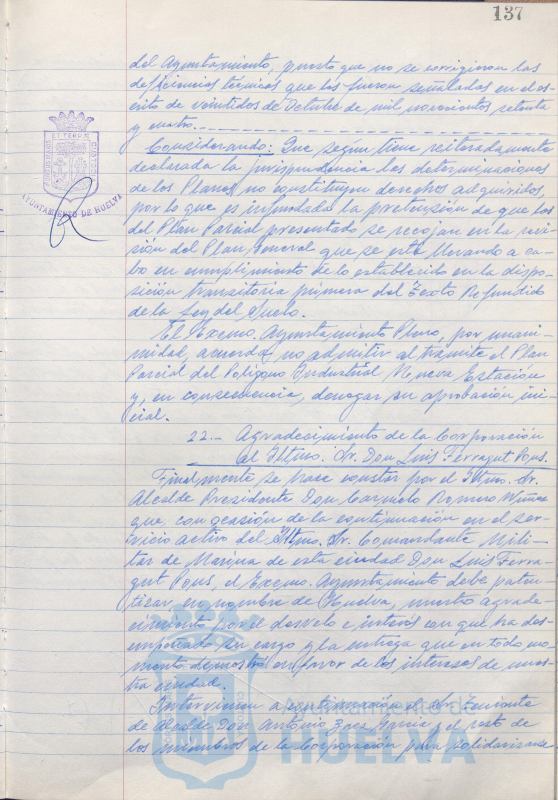 137
del Ayuntamiento, puesto que no se corrigieron las
deficiencias técnicas que les fueron señaladas en el es-
crito de veintidos de Octubre de mil novecientos setenta
y cuatro.
Considerando: Que según tiene reiteradamente
declarada la jurisprudencia las determinaciones
de los Planes no constituyen derechos adquiridos
por lo que es infundada la pretensión de que los
del Plan Parcial presentado se recojan en la revi-
sión del Plan General que se está llevando a ca-
bo en cumplimiento de lo establecido en la dispo-
sición transitoria primera del Texto Refundido
de la Ley del Suelo.
El Excmo. Ayuntamiento Pleno, por unani-
midad, acuerda no admitir al trámite el Plan
Parcial del Polígono Industrial Nueva Estación
y, en consecuencia, denegar su aprobación ini-
cial.
22.- Agradecimiento de la Corporación
al Iltmo. Sr. Don Luis Ferragut Pons.
Finalmente se hace constar por el Iltmo. Sr.
Alcalde Presidente Don Carmelo Romero
que, con ocasión de la continuación en el ser-
vicio activo del Iltmo. Sr. Comandante Mili-
tar de Marina de esta ciudad Don Luis Ferra-
gut Pons, el Excmo. Ayuntamiento debe paten-
tizar, en nombre de Huelva, nuestro agrade-
cimiento por el desvelo e interés con que ha des-
empeñado su cargo y la entrega que en todo mo-
mento demostró en favor de los intereses de nues-
tra ciudad.
Intervienen a continuación el Sr. Teniente
de Alcalde Don Antonio García y el resto de
los miembros de la Corporación para solidarizarse
AYUNTAMIENTO DE HUELVA
Ayuntamiento de
HUELVA